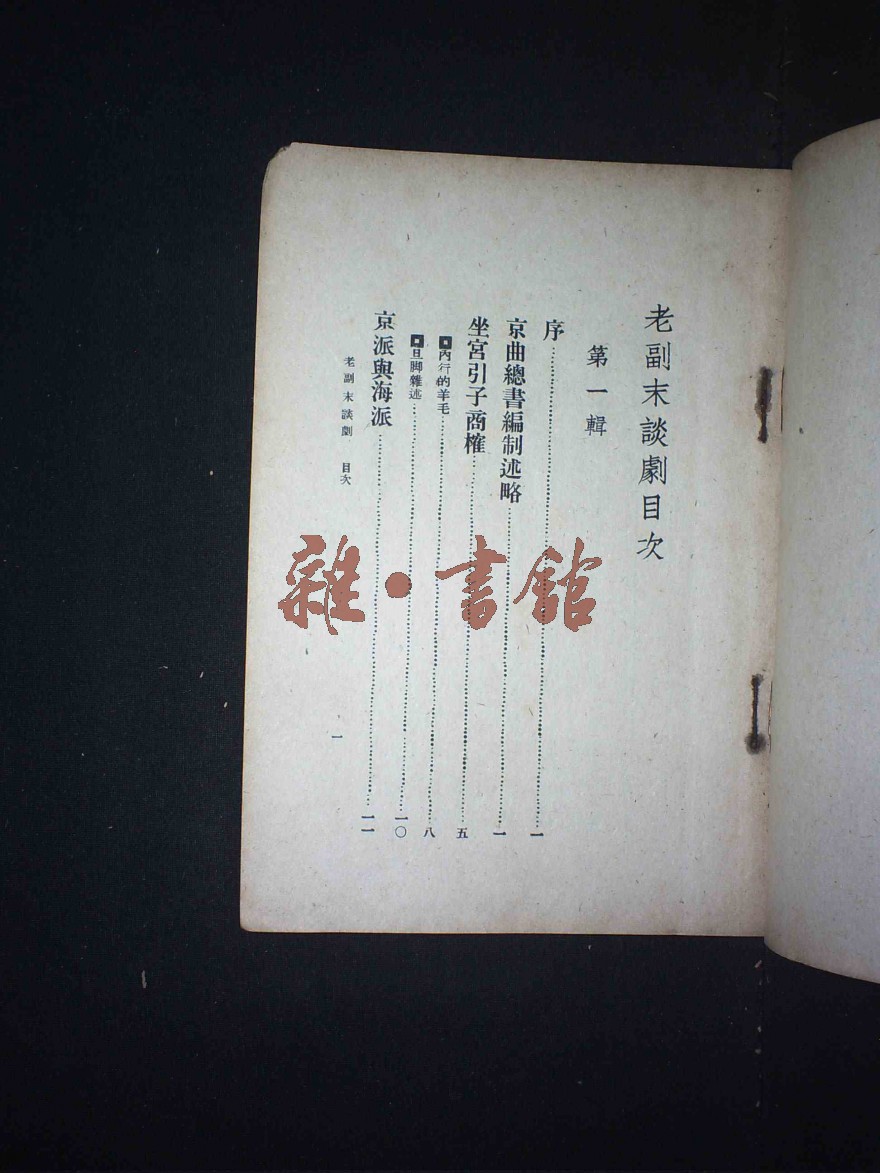 老副末談劇目次
第一輯
序……一
京曲總書編制述略……一
坐宮引子商榷……五
內行的羊毛……八
旦脚雜述……一〇
京派與海派……一一
老副末談劇 目次
一
雜·書館